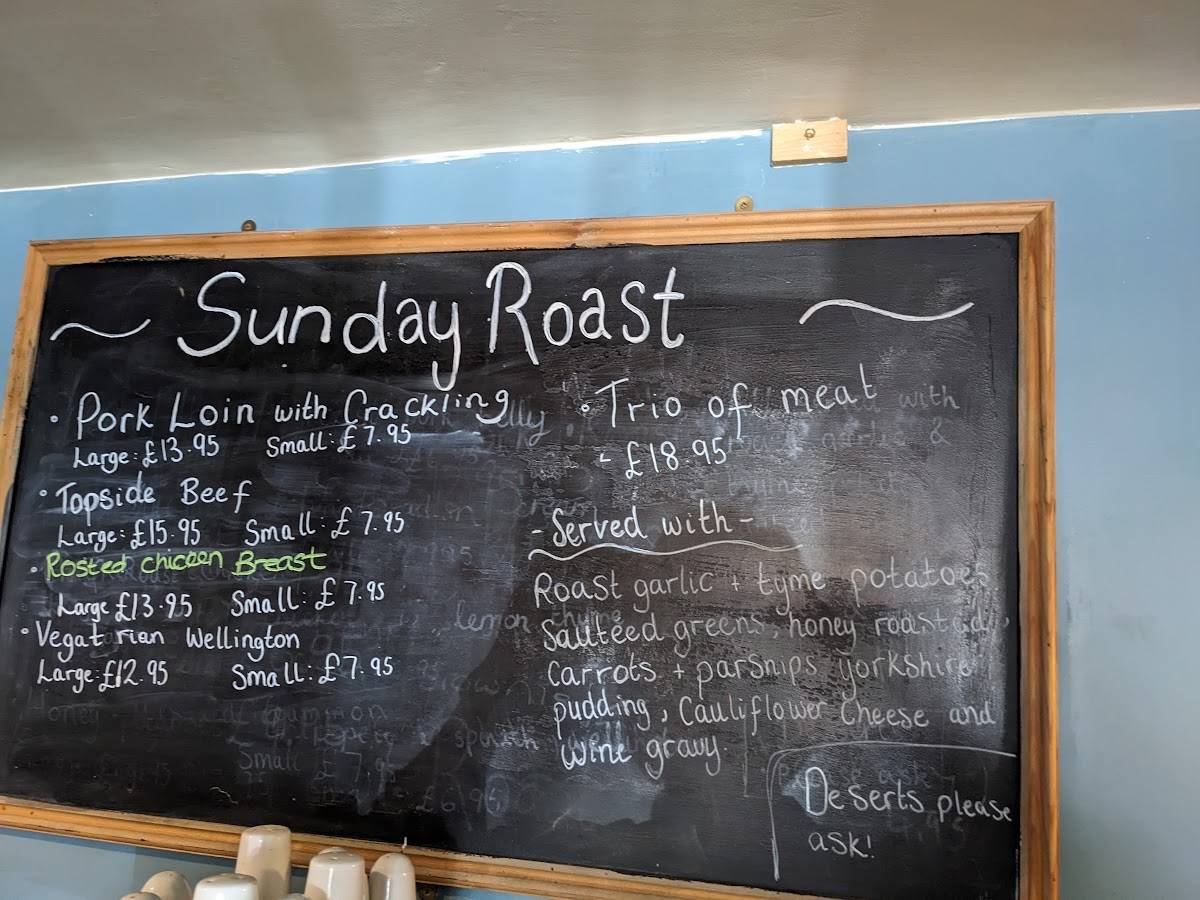 Sunday Roast
• Pork Loin with Crackling
Large: £13.95 Small: £7.95
• Topside Beef
Large: £15.95 Small: £7.95
• Rosted chiceen Breast
Large £13.95 Small: £7.95
• Vegatrian Wellington
Large: £12.95 Small: £7.95
• Trio of meat
- £18.95
- Served with -
Roast garlic + tyme potatoes
Sauteed greens, honey roasted,
Carrots + parsnips yorkshire
pudding, Cauliflower Cheese and
wine gravy.
Deserts please
ask!